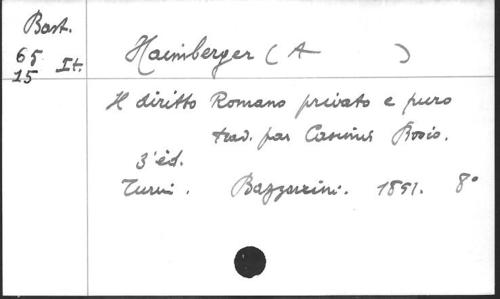 Bast.
65
15 It.
Haimberger (A )
Il diritto Romano privato e puro
trad. par Casimir Bosio.
3e éd.
Turin. Bazzarini. 1851. 8°